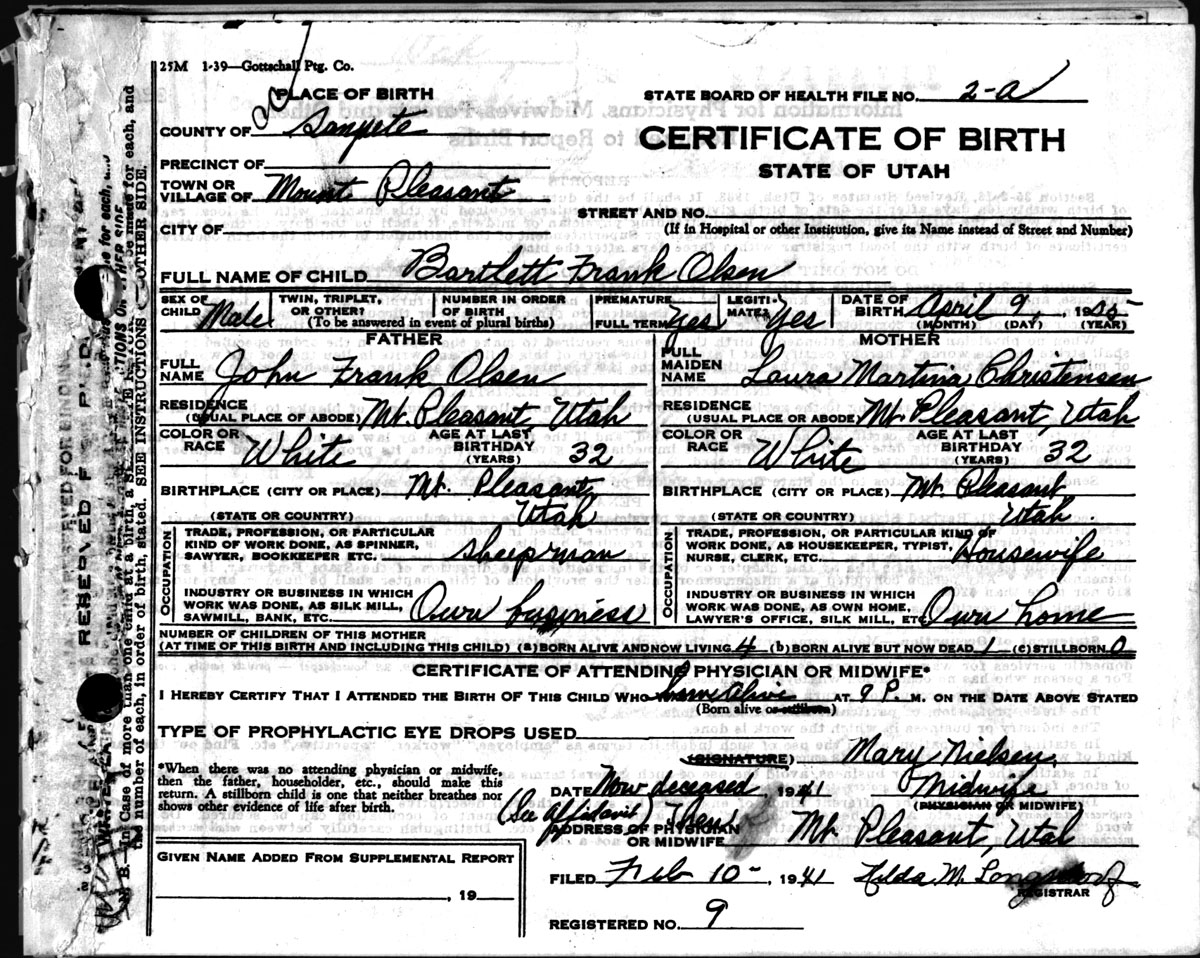 25M 1-39—Gottschall Ptg. Co.
PLACE OF BIRTH
STATE BOARD OF HEALTH FILE NO. 2-a
COUNTY OF Sanpete
CERTIFICATE OF BIRTH
PRECINCT OF
STATE OF UTAH
TOWN OR VILLAGE OF Mount Pleasant
STREET AND NO.
CITY OF
(If in Hospital or other Institution, give its Name instead of Street and Number)
FULL NAME OF CHILD Bartlett Frank Olsen
SEX OF CHILD Male
TWIN, TRIPLET, OR OTHER?
NUMBER IN ORDER OF BIRTH
(To be answered in event of plural births)
PREMATURE
FULL TERM Yes
LEGITI-MATE? Yes
DATE OF BIRTH April 9, 1905
(MONTH) (DAY) (YEAR)
FATHER
FULL NAME John Frank Olsen
RESIDENCE (USUAL PLACE OF ABODE) Mt. Pleasant, Utah
COLOR OR RACE White
AGE AT LAST BIRTHDAY (YEARS) 32
BIRTHPLACE (CITY OR PLACE) Mt. Pleasant,
(STATE OR COUNTRY) Utah
OCCUPATION
TRADE, PROFESSION, OR PARTICULAR
KIND OF WORK DONE, AS SPINNER,
SAWYER, BOOKKEEPER, ETC. Sheepman
INDUSTRY OR BUSINESS IN WHICH
WORK WAS DONE, AS SILK MILL,
SAWMILL, BANK, ETC. Own business
MOTHER
FULL MAIDEN NAME Laura Martina Christensen
RESIDENCE (USUAL PLACE OR ABODE) Mt. Pleasant, Utah
COLOR OR RACE White
AGE AT LAST BIRTHDAY (YEARS) 32
BIRTHPLACE (CITY OR PLACE) Mt. Pleasant
(STATE OR COUNTRY) Utah.
OCCUPATION
TRADE, PROFESSION, OR PARTICULAR KIND OF
WORK DONE, AS HOUSEKEEPER, TYPIST,
NURSE, CLERK, ETC. Housewife
INDUSTRY OR BUSINESS IN WHICH
WORK WAS DONE, AS OWN HOME,
LAWYER'S OFFICE, SILK MILL, ETC. Own home
NUMBER OF CHILDREN OF THIS MOTHER
(AT TIME OF THIS BIRTH AND INCLUDING THIS CHILD) (a) BORN ALIVE AND NOW LIVING 4 (b) BORN ALIVE BUT NOW DEAD 1 (c) STILLBORN 0
CERTIFICATE OF ATTENDING PHYSICIAN OR MIDWIFE*
I HEREBY CERTIFY THAT I ATTENDED THE BIRTH OF THIS CHILD WHO AT 9 P. M. ON THE DATE ABOVE STATED
(Born alive or stillborn)
TYPE OF PROPHYLACTIC EYE DROPS USED
*When there was no attending physician or midwife,
then the father, householder, etc., should make this
return. A stillborn child is one that neither breathes nor
shows other evidence of life after birth.
(SIGNATURE) Mary Nielsen,
DATE Now deceased, 1941 Midwife
(PHYSICIAN OR MIDWIFE)
(See Affidavit) Then
ADDRESS OF PHYSICIAN OR MIDWIFE Mt. Pleasant, Utah
GIVEN NAME ADDED FROM SUPPLEMENTAL REPORT
, 19
FILED Feb 10-, 1941 Hilda M. Longsdorf
REGISTRAR
REGISTERED NO. 9
RESERVED
N. B.—In Case of more than one child at a birth, a be made for each, and
the number of each, in order of birth, stated. SEE INSTRUCTIONS OTHER SIDE.